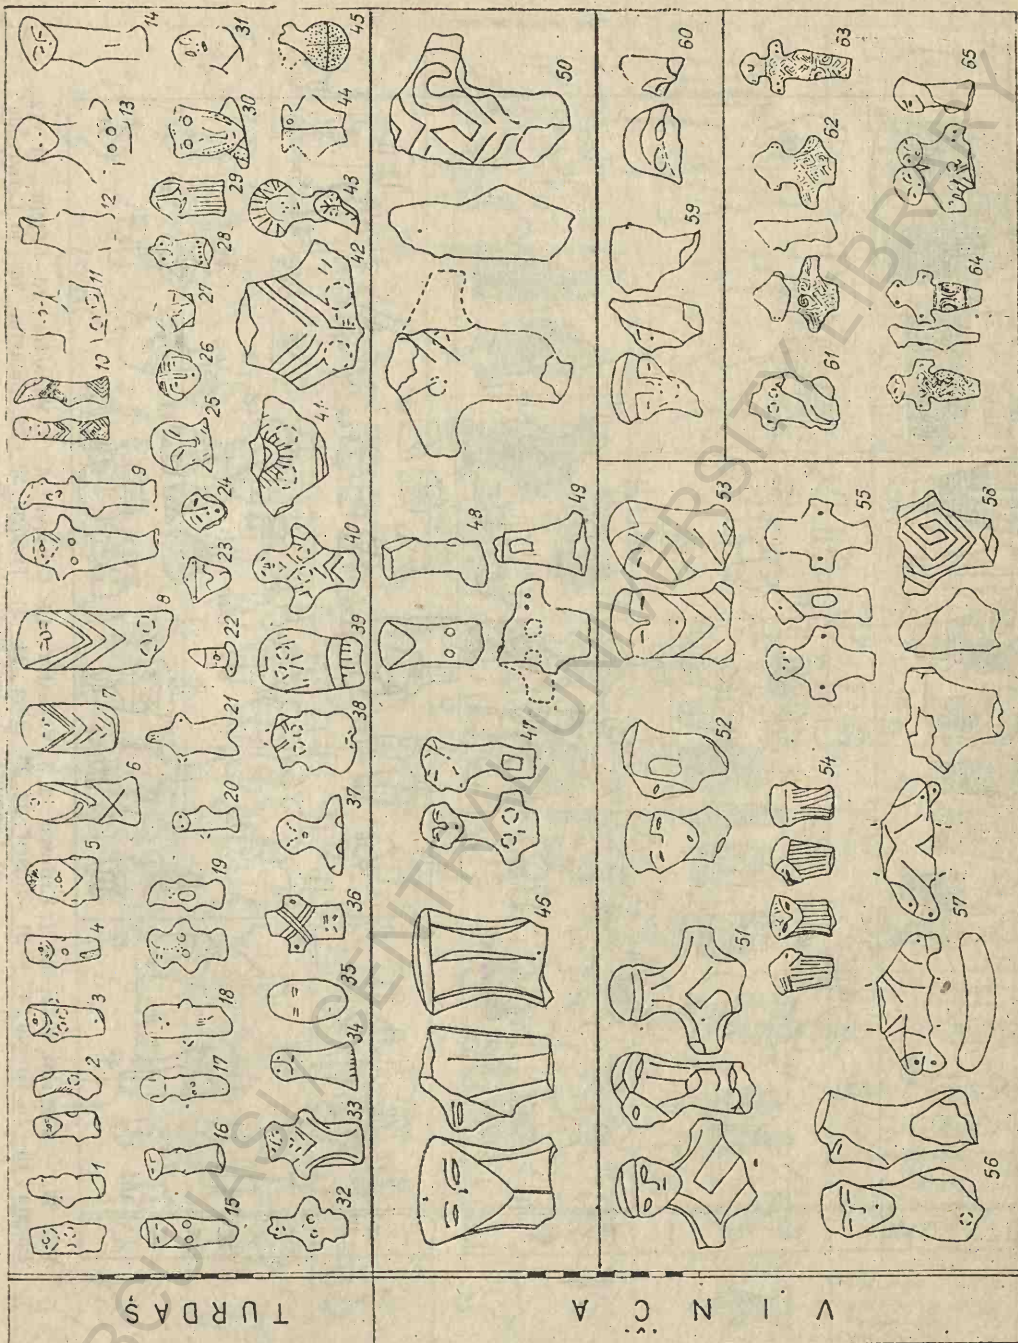 TURDAŞ
1 2 3 4 5 6 7 8 9 10 11 12 13 14
15 16 17 18 19 20 21 22 23 24 25 26 27 28 29 30 31
32 33 34 35 36 37 38 39 40 41 42 43 44 45
VINČA
46 47 48 49 50
51 52 53 59 60
54 55
56 57 58
61 62 63
64 65
BCU IASI / CENTRAL UNIVERSITY LIBRARY